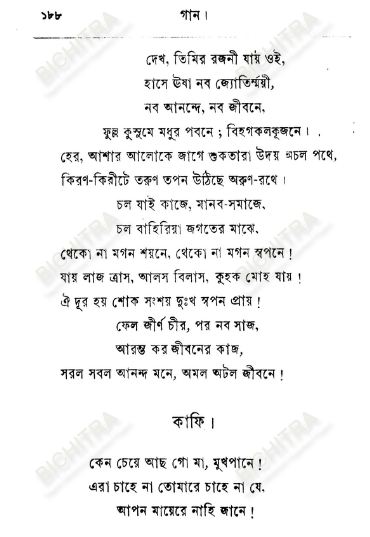 ১৮৮ গান।
দেখ, তিমির রজনী যায় ওই,
হাসে ঊষা নব জ্যোতির্ম্ময়ী,
নব আনন্দে, নব জীবনে,
ফুল্ল কুসুমে মধুর পবনে; বিহগকলকূজনে।
হের, আশার আলোকে জাগে শুকতারা উদয় অচল পথে,
কিরণ-কিরীটে তরুণ তপন উঠিছে অরুণ-রথে।
চল যাই কাজে, মানব-সমাজে,
চল বাহিরিয়া জগতের মাঝে,
থেকো না মগন শয়নে, থেকো না মগন স্বপনে!
যায় লাজ ত্রাস, আলস বিলাস, কুহক মোহ যায়!
ঐ দূর হয় শোক সংশয় দুঃখ স্বপন প্রায়!
ফেল জীর্ণ চীর, পর নব সাজ,
আরম্ভ কর জীবনের কাজ,
সরল সবল আনন্দ মনে, অমল অটল জীবনে!
কাফি।
কেন চেয়ে আছ গো মা, মুখপানে!
এরা চাহে না তোমারে চাহে না যে,
আপন মায়েরে নাহি জানে!
BICHITRA
BICHITRA
BICHITRA
BICHITRA
BICHITRA
BICHITRA